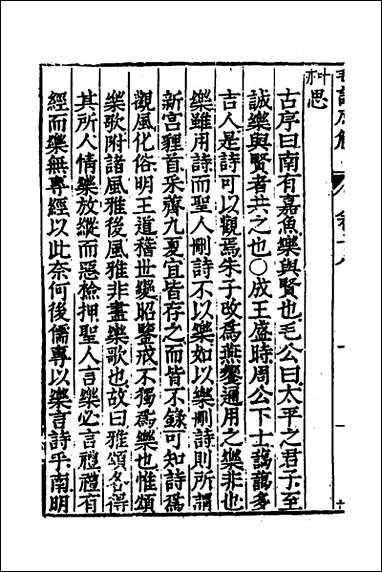 毛詩原解
叶思
古序曰南有嘉魚樂與賢也毛公曰太平之君子至
誠樂與賢者共之也○成王盛時周公下士藹藹多
吉人是詩可以觀焉朱子改爲燕饗通用之樂非也
樂雖用詩而聖人刪詩不以樂如以樂刪詩則所謂
新宮貍首采齊九夏宜皆存之而皆不錄可知詩爲
觀風化俗明王道稽世變昭鑒戒不獨爲樂也惟頌
樂歌附諸風雅後風雅非盡樂歌也故曰雅頌各得
其所人情樂放縱而惡檢押聖人言樂必言禮禮有
經而樂無專經以此奈何後儒專以樂言詩乎南明